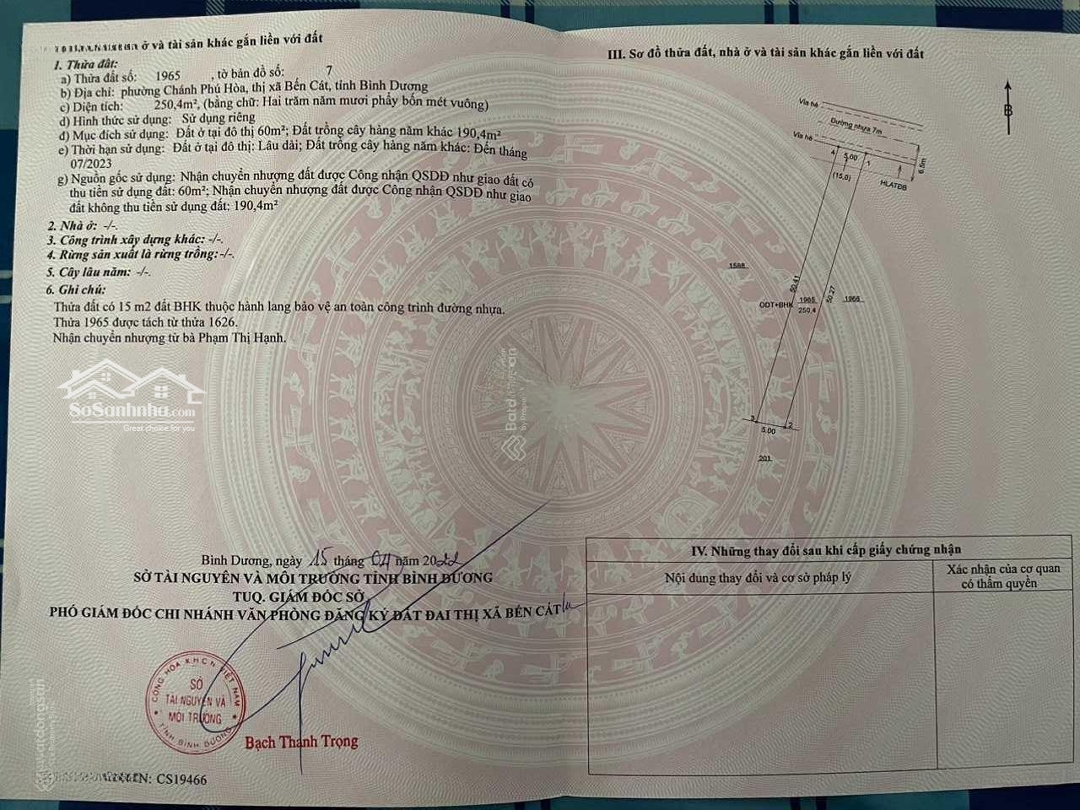 ở và tài sản khác gắn liền với đất
1. Thửa đất:
a) Thửa đất số: 1965 , tờ bản đồ số: 7
b) Địa chỉ: phường Chánh Phú Hòa, thị xã Bến Cát, tỉnh Bình Dương
c) Diện tích: 250,4m², (bằng chữ: Hai trăm năm mươi phẩy bốn mét vuông)
d) Hình thức sử dụng: Sử dụng riêng
đ) Mục đích sử dụng: Đất ở tại đô thị 60m²; Đất trồng cây hàng năm khác 190,4m²
e) Thời hạn sử dụng: Đất ở tại đô thị: Lâu dài; Đất trồng cây hàng năm khác: Đến tháng
07/2023
g) Nguồn gốc sử dụng: Nhận chuyển nhượng đất được Công nhận QSDĐ như giao đất có
thu tiền sử dụng đất: 60m²; Nhận chuyển nhượng đất được Công nhận QSDĐ như giao
đất không thu tiền sử dụng đất: 190,4m²
2. Nhà ở: -/-.
3. Công trình xây dựng khác: -/-.
4. Rừng sản xuất là rừng trồng: -/-.
5. Cây lâu năm: -/-.
6. Ghi chú:
Thửa đất có 15 m2 đất BHK thuộc hành lang bảo vệ an toàn công trình đường nhựa.
Thửa 1965 được tách từ thửa 1626.
Nhận chuyển nhượng từ bà Phạm Thị Hạnh.
SoSanhnha.com
Great choice for you
Bình Dương, ngày 15 tháng 04 năm 2022
SỞ TÀI NGUYÊN VÀ MÔI TRƯỜNG TỈNH BÌNH DƯƠNG
TUQ. GIÁM ĐỐC SỞ
PHÓ GIÁM ĐỐC CHI NHÁNH VĂN PHÒNG ĐĂNG KÝ ĐẤT ĐAI THỊ XÃ BẾN CÁT
CỘNG HÒA X.H.C.N VIỆT NAM
SỞ
TÀI NGUYÊN VÀ
MÔI TRƯỜNG
TỈNH BÌNH DƯƠNG
Bạch Thanh Trọng
CS19466
III. Sơ đồ thửa đất, nhà ở và tài sản khác gắn liền với đất
B
Vỉa hè
Đường nhựa 7m
Vỉa hè
4 5.00 1
6.5m
(15,0)
HLATĐB
1588
50.41
50.27
ODT+BHK 1965
250,4
1966
3 5.00 2
201
IV. Những thay đổi sau khi cấp giấy chứng nhận
Nội dung thay đổi và cơ sở pháp lý
Xác nhận của cơ quan
có thẩm quyền